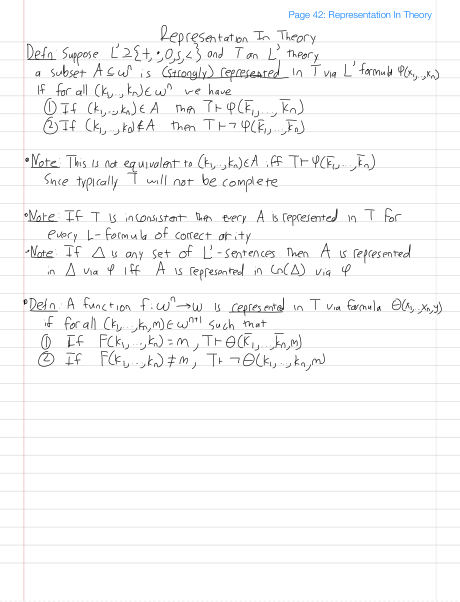 Page 42: Representation In Theory
Representation In Theory
Defn: Suppose L' ⊇ {+, ·, 0, s, <} and T an L' theory
a subset A ⊆ ω^n is (strongly) represented in T via L' formula φ(x₁,...,xₙ)
If for all (k₁,...,kₙ) ∈ ω^n we have
① If (k₁,...,kₙ) ∈ A then T ⊢ φ(k̄₁,...,k̄ₙ)
② If (k₁,...,kₙ) ∉ A then T ⊢ ¬φ(k̄₁,...,k̄ₙ)
• Note: This is not equivalent to (k₁,...,kₙ) ∈ A iff T ⊢ φ(k̄₁,...,k̄ₙ)
Since typically T will not be complete
• Note: If T is inconsistent then every A is represented in T for
every L-formula of correct arity
- Note: If Δ is any set of L'-sentences then A is represented
in Δ via φ iff A is represented in Cn(Δ) via φ
• Defn: A function f: ω^n → ω is represented in T via formula Θ(x₁,...,xₙ,y)
if for all (k₁,...,kₙ,m) ∈ ω^{n+1} such that
① If F(k₁,...,kₙ) = m, T ⊢ Θ(k̄₁,...,k̄ₙ,m)
② If F(k₁,...,kₙ) ≠ m, T ⊢ ¬Θ(k₁,...,kₙ,m)